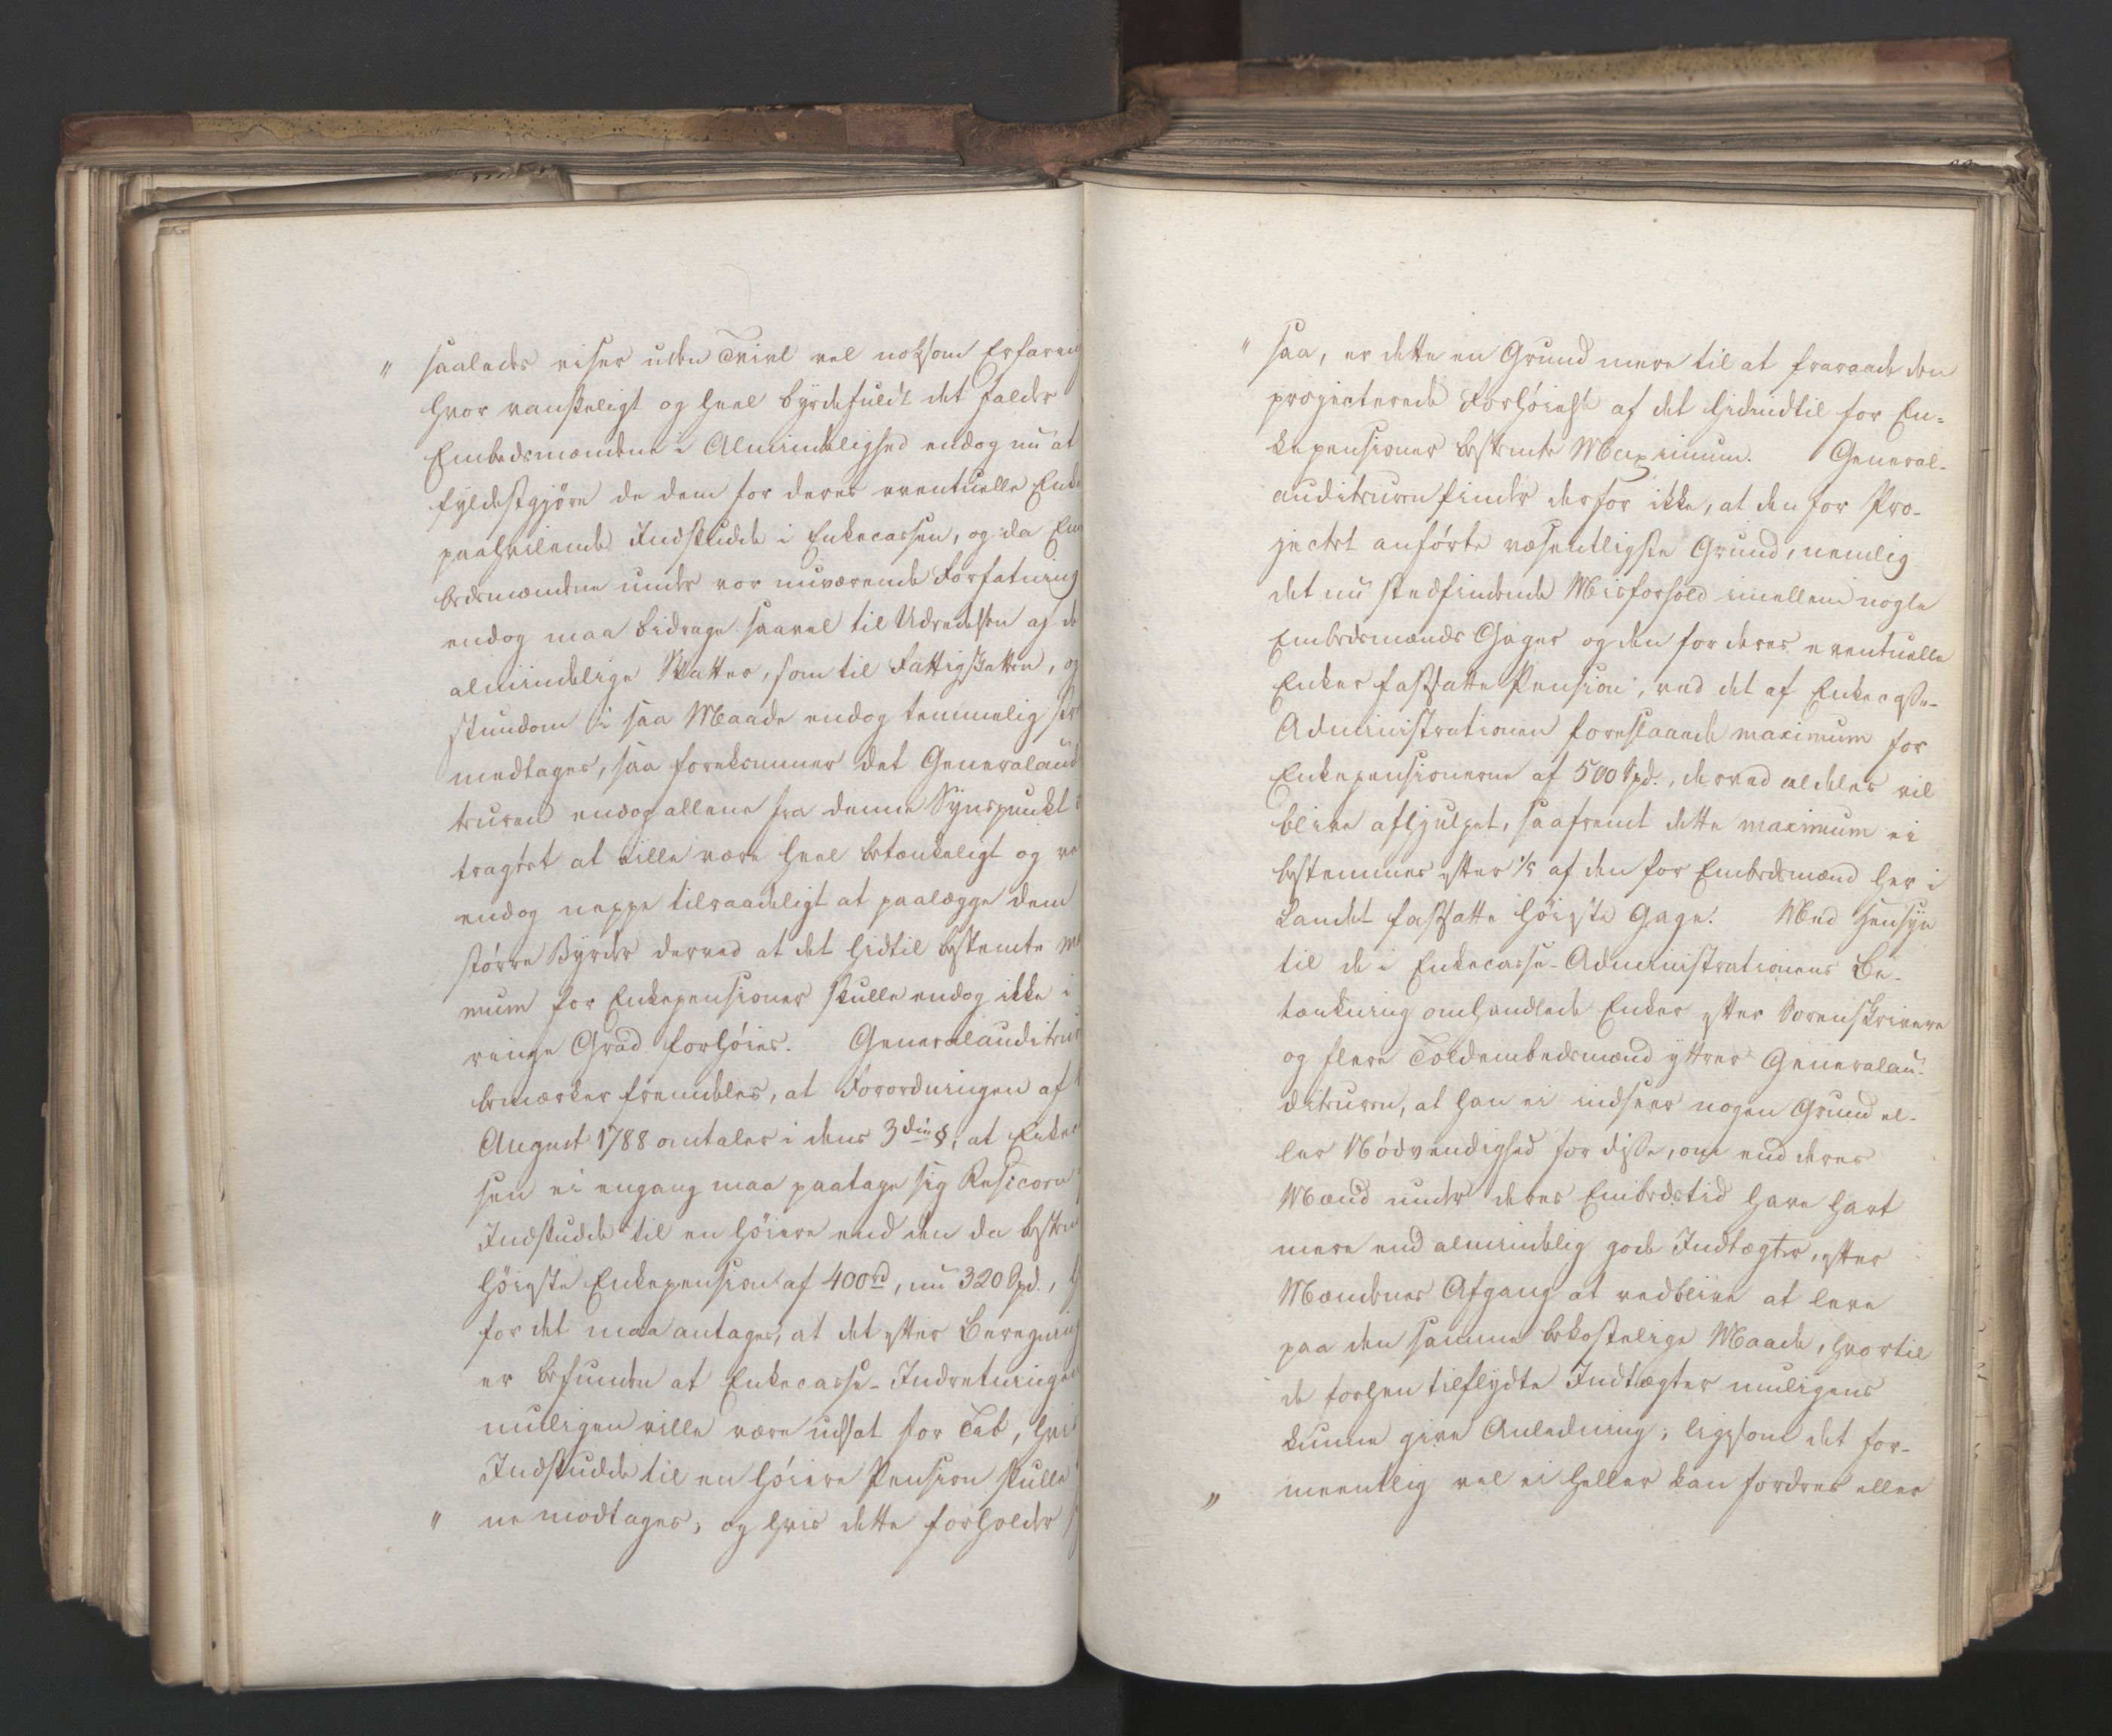 " saaledes viser uden Tvivl vel noksom Erfaring
hvor vanskeligt og heel byrdefuldt det falder
Embedsmændene i Almindelighed endog nu at
fyldestgjøre de dem for deres eventuelle Enke
paahvilende Indskudde i Enkecassen, og da Em
bedsmændene under vor nuværende Forfatning
endog maa bidrage saavel til Udredelsen af de
almindelige Skatter, som til Fattigskatten, og
stundom i saa Maade endog temmelig
medtages, saa forekommer det Generalaudi
teuren endog allene fra denne Synspunkt
tragtet at ville være heel betænkeligt og
endog neppe tilraadeligt at paalægge dem
større Byrder derved at det hidtil bestemte
mum for Enkepensioner skulle endog ikke i
ringe Grad forhöies. Generalauditeur
bemærker fremdeles, at Forordningen af
August 1788 omtaler i dens 3die §, at Enkec
sen ei engang maa paatage sig Resicoen
Indskudde til en höiere end den da bestem
höieste Enkepension af 400rd, nu 320 Spd.,
for det maa antages, at det efter Beregning
er befunden at Enkecasse-Indretningen
muligen ville være udsat for Tab, hvis
Indskudde til en höiere Pension skulle
" ne modtages, og hvis dette forholder
" saa, er dette en Grund mere til at fraraade den
projecterede Forhöielse af det hidindtil for En-
kepensioner bestemte Maximum. General-
auditeuren finder derfor ikke, at den for Pro-
jectet anförte væsentligste Grund, nemlig
det nu stedfindende Misforhold imellem nogle
Embedsmænds Gager og den for deres eventuelle
Enker fastsatte Pension, ved det af Enkecasse-
Administrationen foreslaaede maximum for
Enkepensionerne af 500 Spd., derved aldeles vil
blive afhjulpet, saafremt dette maximum ei
bestemmes efter 1/5 af den for Embedsmænd her i
Landet fastsatte höieste Gage. Med Hensyn
til de i Enkecasse-Administrationens Be-
tænkning omhandlede Enker efter Sorenskrivere
og flere Toldembedsmænd yttrer Generalau-
diteuren, at han ei indseer nogen Grund el-
ler Nödvendighed for disse, om end deres
Mænd under deres Embedstid have havt
mere end almindelig gode Indtægter, efter
Mændenes Afgang at vedblive at leve
paa den samme bekostelige Maade, hvortil
de forhen tilflydte Indtægter muligens
kunne give Anledning; ligesom det for-
" meentlig vel ei heller kan fordres eller